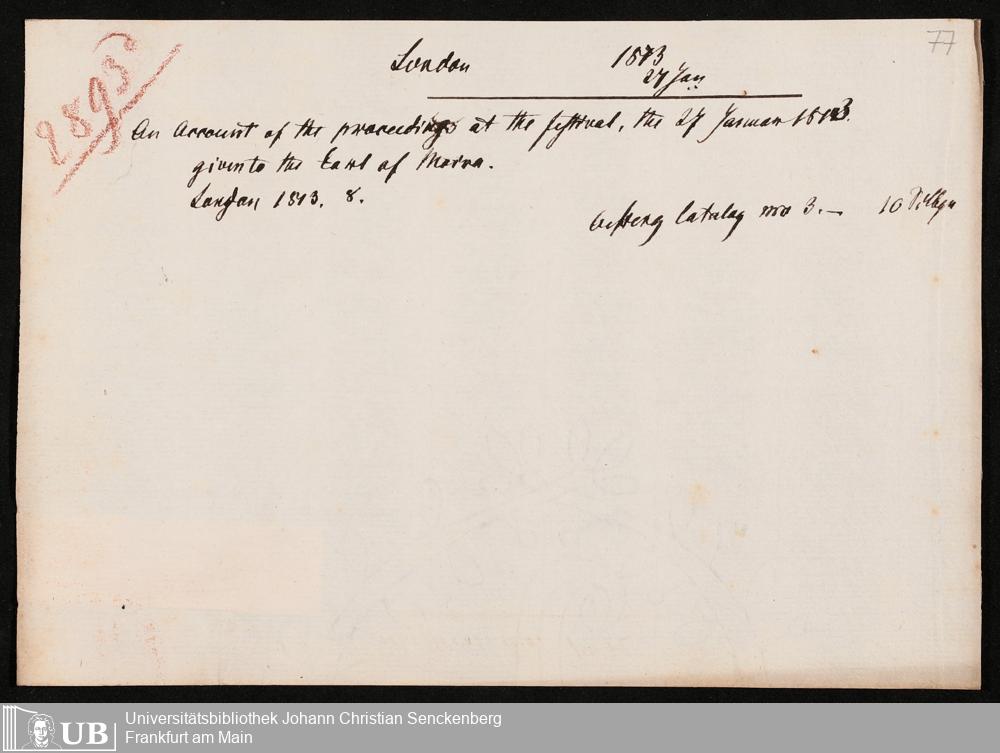 77
2895
London 1813
27 Jan
An Account of the proceedings at the festival, the 27 Januar 1813.
given to the Earl of Moira.
London 1813. 8.
Catalog no 3. – 10
Universitätsbibliothek Johann Christian Senckenberg
Frankfurt am Main
UB